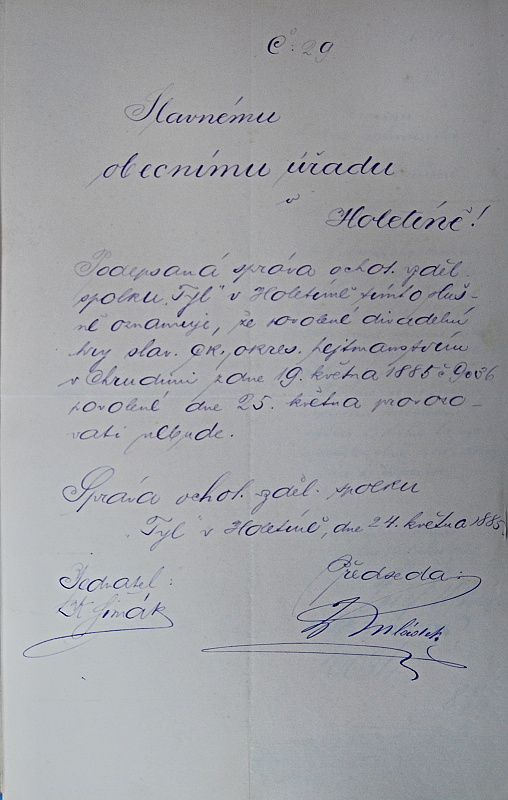 Č. 29
Slavnému
obecnímu úřadu
v
Holetíně!
Podepsaná správa ochot. vzděl.
spolku "Tyl" v Holetíně tímto sluš-
ně oznamuje, že povolené divadelní
hry slav. ck. okres. hejtmanstvím
v Chrudimi z dne 19. května 1885 č
povolené dne 25. května provozo-
vati nebude.
Správa ochot. vzděl. spolku
"Tyl" v Holetíně, dne 24. května 1885.
Jednatel: Předseda:
Šimák Mládek